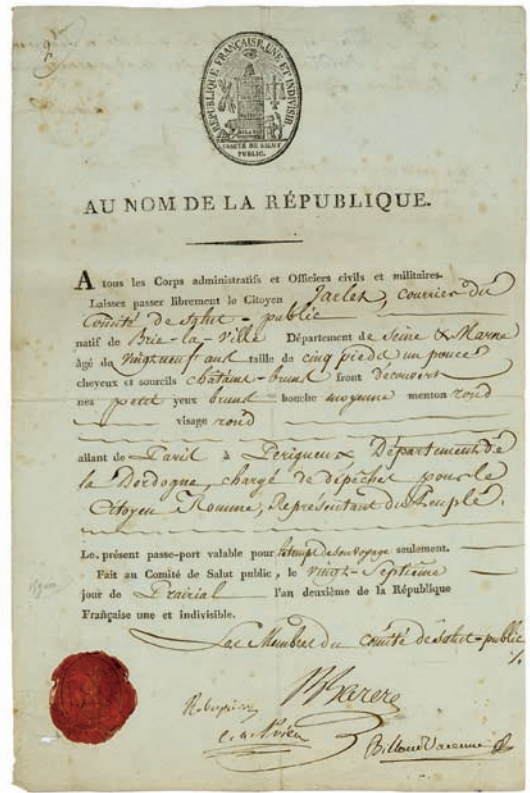 RÉPUBLIQUE FRANÇAISE, UNE ET INDIVISIB
COMITÉ DE SALUT
PUBLIC.
AU NOM DE LA RÉPUBLIQUE.
A tous les Corps administratifs et Officiers civils et militaires.
Laissez passer librement le Citoyen Jarlet, courrier du
Comité de Salut-public
natif de Brie-la-ville Département de Seine & Marne
âgé de vingt neuf ans taille de cinq pieds un pouce
cheveux et sourcils châtains-bruns front découvert
nés petit yeux bruns bouche moyenne menton rond
visage rond
allant de Paris à Périgueux Département de
la Dordogne, chargé de dépêches pour le
Citoyen Romme, Représentant du Peuple.
Le présent passe-port valable pour le temps de son voyage seulement.
Fait au Comité de Salut public, le vingt-Septieme
jour de Prairial l'an deuxième de la République
Française une et indivisible.
Les Membres du comité de Salut-public
B Barere
Robespierre
C. a. Prieur
Billaud Varenne